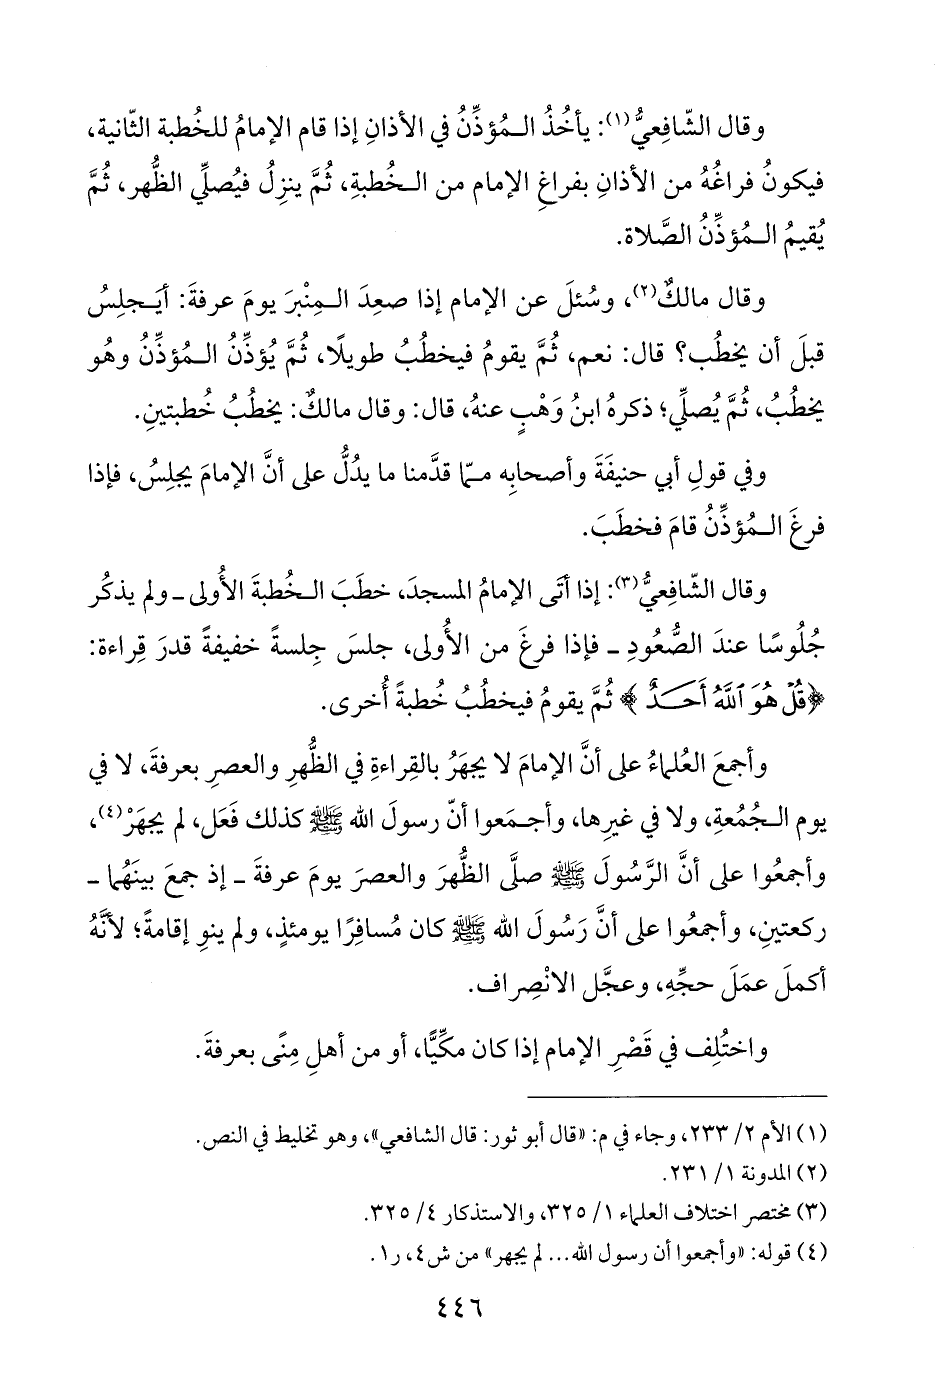 وقال الشّافِعيُّ(١): يأخُذُ الـمُؤذِّنُ في الأذانِ إذا قام الإمامُ للخُطبة الثّانية،
فيكونُ فراغُهُ من الأذانِ بفراغِ الإمام من الـخُطبةِ، ثُمَّ ينزِلُ فيُصلِّي الظُّهر، ثُمَّ
يُقيمُ الـمُؤذِّنُ الصَّلاة.
وقال مالكٌ(٢)، وسُئلَ عن الإمام إذا صعِدَ الـمِنْبرَ يومَ عرفةَ: أيَـجلِسُ
قبلَ أن يخطُب؟ قال: نعم، ثُمَّ يقومُ فيخطُبُ طويلًا، ثُمَّ يُؤذِّنُ الـمُؤذِّنُ وهُو
يخطُبُ، ثُمَّ يُصلِّي؛ ذكرهُ ابنُ وَهْبٍ عنهُ، قال: وقال مالكٌ: يخطُبُ خُطبتينِ.
وفي قولِ أبي حنيفَةَ وأصحابِه مـمّا قدَّمنا ما يدُلُّ على أنَّ الإمامَ يجلِسُ، فإذا
فرغَ الـمُؤذِّنُ قامَ فخطَبَ.
وقال الشّافِعيُّ(٣): إذا أتَى الإمامُ المسجدَ، خطَبَ الـخُطبةَ الأُولى ـ ولم يذكُر
جُلُوسًا عندَ الصُّعُودِ ـ فإذا فرغَ من الأُولى، جلسَ جِلسةً خفيفةً قدرَ قِراءة:
﴿قُلْ هُوَ ٱللَّهُ أَحَـدٌ﴾ ثُمَّ يقومُ فيخطُبُ خُطبةً أُخرى.
وأجمعَ العُلماءُ على أنَّ الإمامَ لا يجهَرُ بالقِراءةِ في الظُّهرِ والعصرِ بعرفةَ، لا في
يوم الـجُمُعةِ، ولا في غيرِها، وأجـمَعوا أنّ رسولَ الله ﷺ كذلك فَعَل، لم يجهَرْ(٤)،
وأجمعُوا على أنَّ الرَّسُولَ ﷺ صلَّى الظُّهرَ والعصرَ يومَ عرفةَ ـ إذ جمعَ بينَهُما ـ
ركعتينِ، وأجمعُوا على أنَّ رَسُولَ الله ﷺ كان مُسافِرًا يومئذٍ، ولم ينوِ إقامةً؛ لأنَّهُ
أكملَ عمَلَ حجِّهِ، وعجَّل الانْصِراف.
واختُلِف في قَصْرِ الإمام إذا كان مكِّيًّا، أو من أهلِ مِنًى بعرفةَ.
(١) الأم ٢/ ٢٣٣، وجاء في م: «قال أبو ثور: قال الشافعي»، وهو تخليط في النص.
(٢) المدونة ١/ ٢٣١.
(٣) مختصر اختلاف العلماء ١/ ٣٢٥، والاستذكار ٤/ ٣٢٥.
(٤) قوله: «وأجمعوا أن رسول الله... لم يجهر» من ش٤، ر١.
٤٤٦